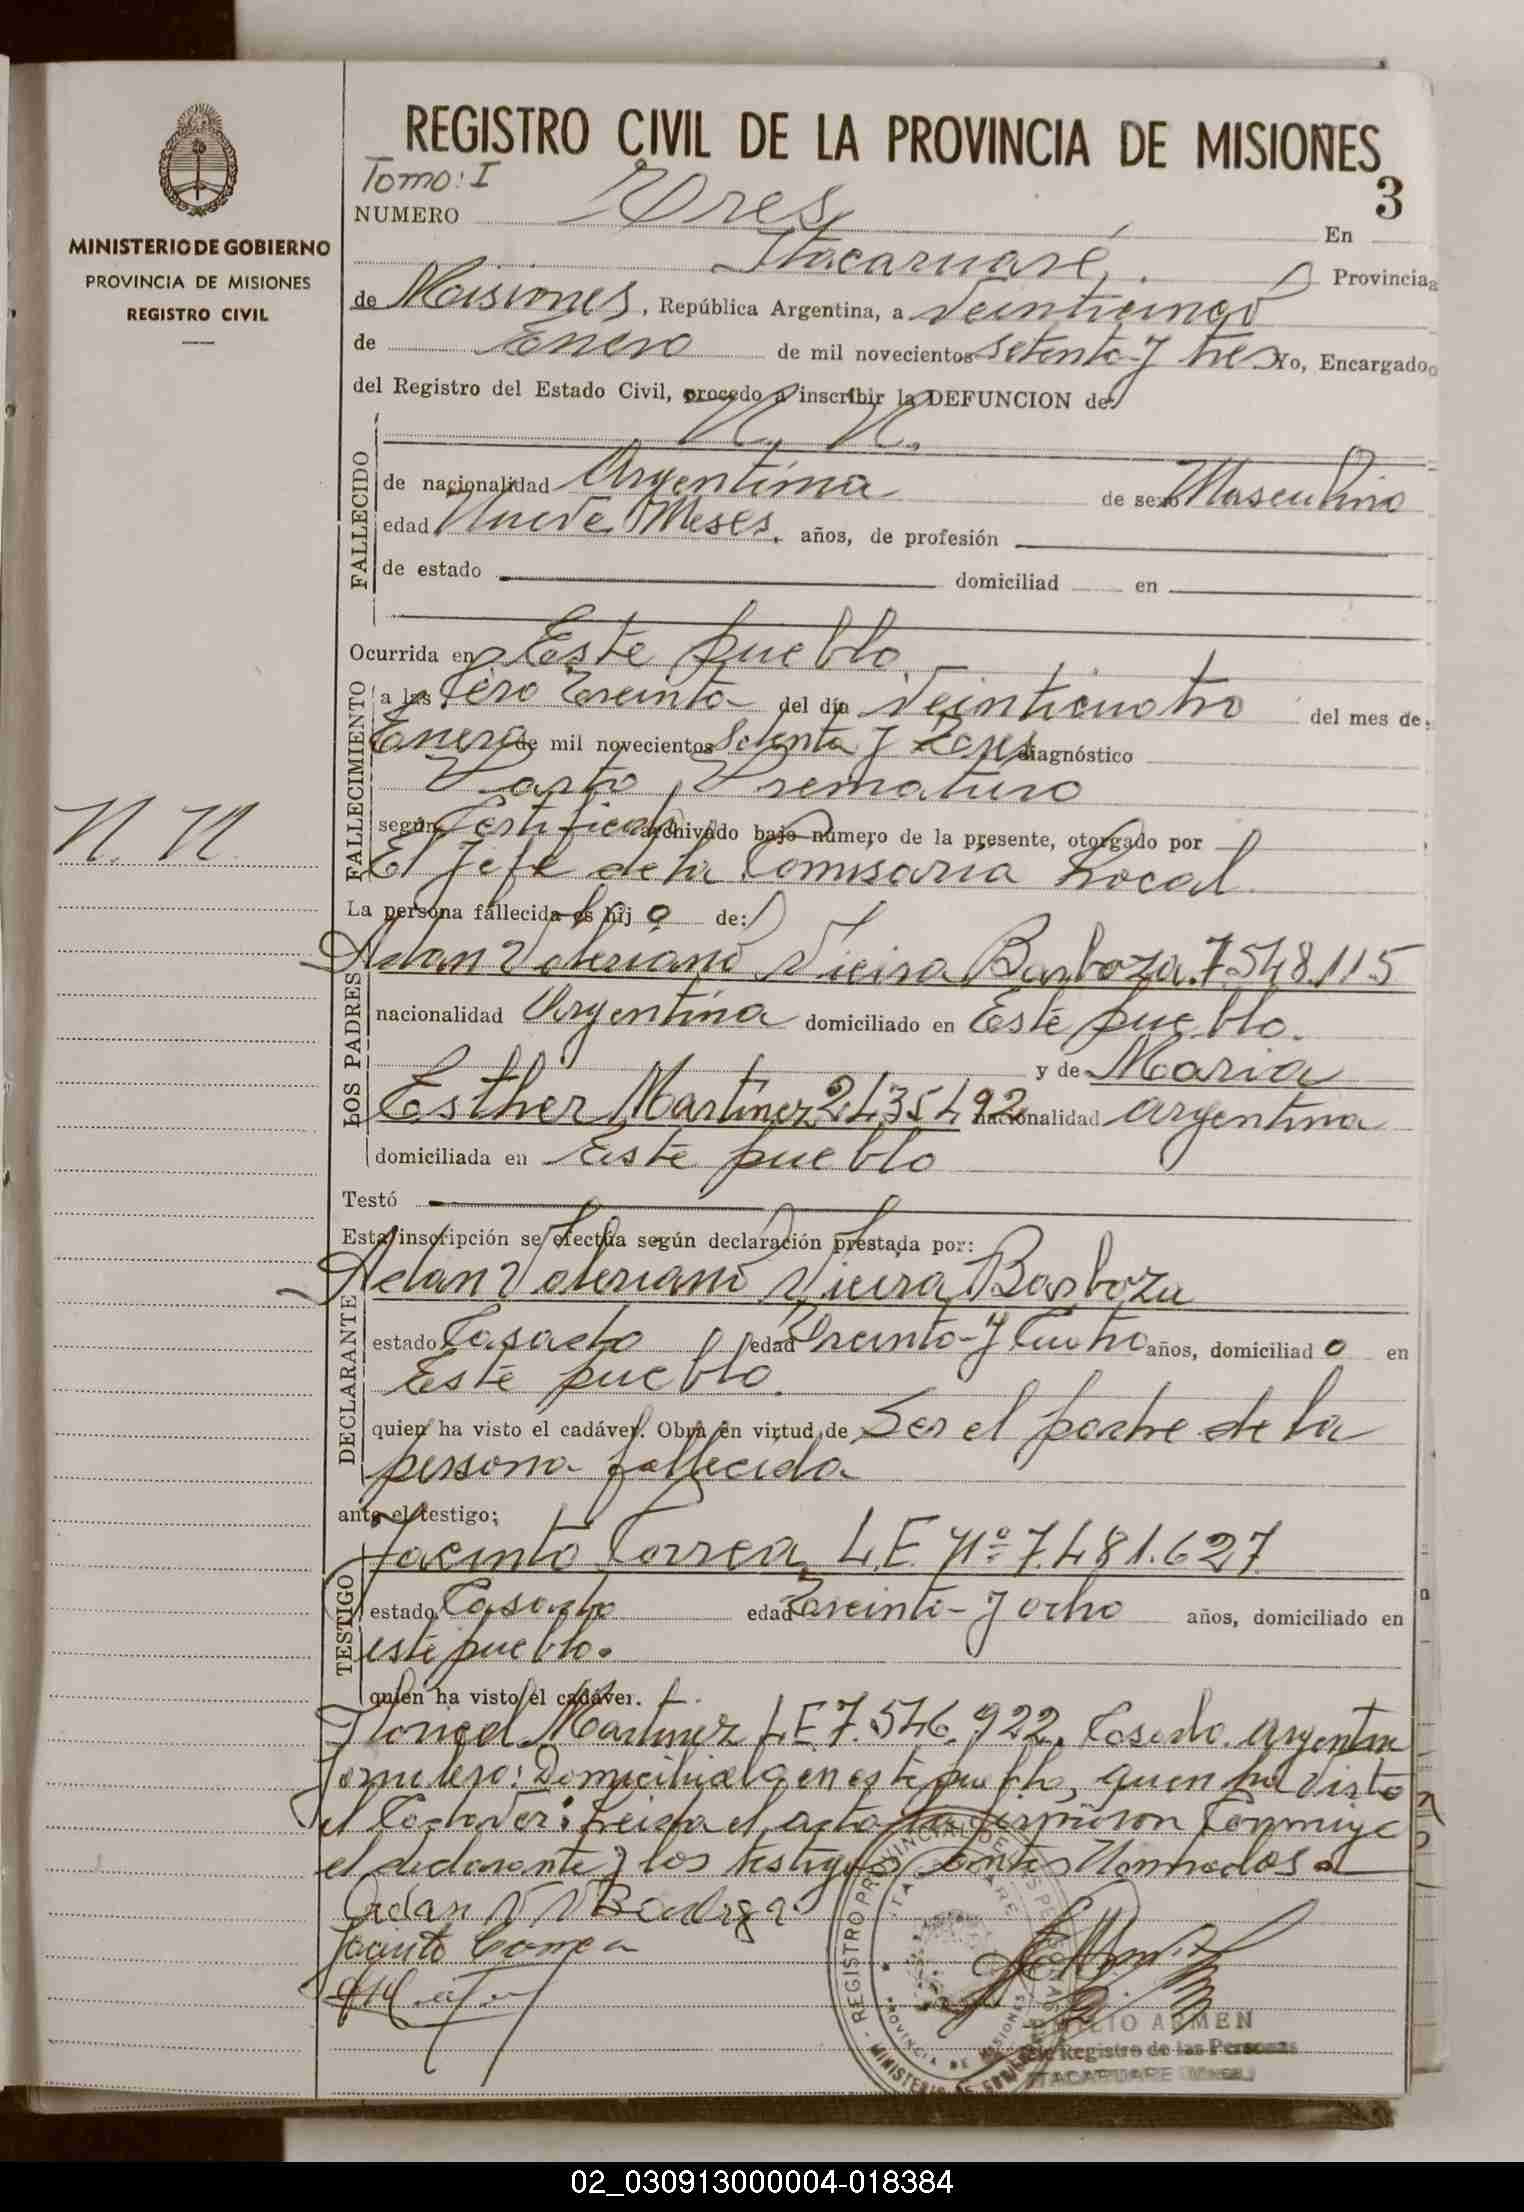 MINISTERIO DE GOBIERNO
PROVINCIA DE MISIONES
REGISTRO CIVIL
N. N.
REGISTRO CIVIL DE LA PROVINCIA DE MISIONES
Tomo: I
3
NUMERO Tres En
Itacaruaré, Provincia
de Misiones, República Argentina, a Veinticinco
de Enero de mil novecientos Setenta y tres Yo, Encargado
del Registro del Estado Civil, procedo a inscribir la DEFUNCION de:
N. N.
FALLECIDO
de nacionalidad Argentina de sexo Masculino
edad Nueve Meses. años, de profesión
de estado domiciliad en
FALLECIMIENTO
Ocurrida en Este pueblo
a las Cero Treinta del día Veinticuatro del mes de
Enero de mil novecientos Setenta y Tres diagnóstico
Parto Prematuro
según Certificado archivado bajo número de la presente, otorgado por
El Jefe de la Comisaria Local
La persona fallecida es hij o de:
LOS PADRES
Adan Valeriano Vieira Barboza. 7.548.115
nacionalidad Argentina domiciliado en Este pueblo.
y de Maria
Esther Martinez 2.435.492 nacionalidad argentina
domiciliada en Este pueblo
Testó
Esta inscripción se efectúa según declaración prestada por:
DECLARANTE
Adan Valeriano Vieira Barboza
estado Casado edad Treinta y Cuatro años, domiciliad o en
Este pueblo.
quien ha visto el cadáver. Obra en virtud de Ser el padre de la
persona fallecida
ante el testigo;
TESTIGO
Jacinto Correa L.E. Nº 7.481.627
estado Casado edad Treinta y ocho años, domiciliado en
este pueblo.
quien ha visto el cadáver.
Martinez L.E. 7.546.922. Casado. argentino
Jornalero: Domiciliado en este pueblo, quien ha visto
el Cadaver: Leida el acta la firmaron Conmigo
el declarante y los testigos antes Nombrados.
Adan V V Barboza
Jacinto Correa
REGISTRO PROVINCIAL DE LAS PERSONAS
ITACARUARE
PROVINCIA DE MISIONES
MINISTERIO DE GOBIERNO
EMILIO ARMEN
Jefe Registro de las Personas
ITACARUARE (Mnes.)
02_030913000004-018384